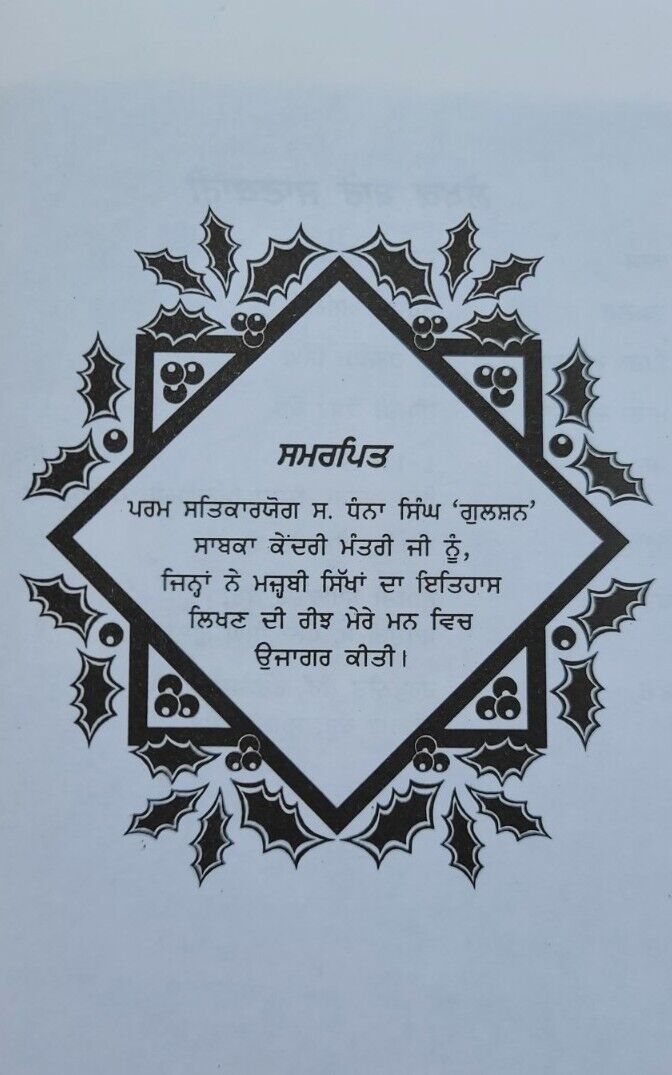 ਸਮਰਪਿਤ
ਪਰਮ ਸਤਿਕਾਰਯੋਗ ਸ. ਧੰਨਾ ਸਿੰਘ ‘ਗੁਲਸ਼ਨ’
ਸਾਬਕਾ ਕੇਂਦਰੀ ਮੰਤਰੀ ਜੀ ਨੂੰ,
ਜਿਨ੍ਹਾਂ ਨੇ ਮਜ਼੍ਹਬੀ ਸਿੱਖਾਂ ਦਾ ਇਤਿਹਾਸ
ਲਿਖਣ ਦੀ ਰੀਝ ਮੇਰੇ ਮਨ ਵਿਚ
ਉਜਾਗਰ ਕੀਤੀ।